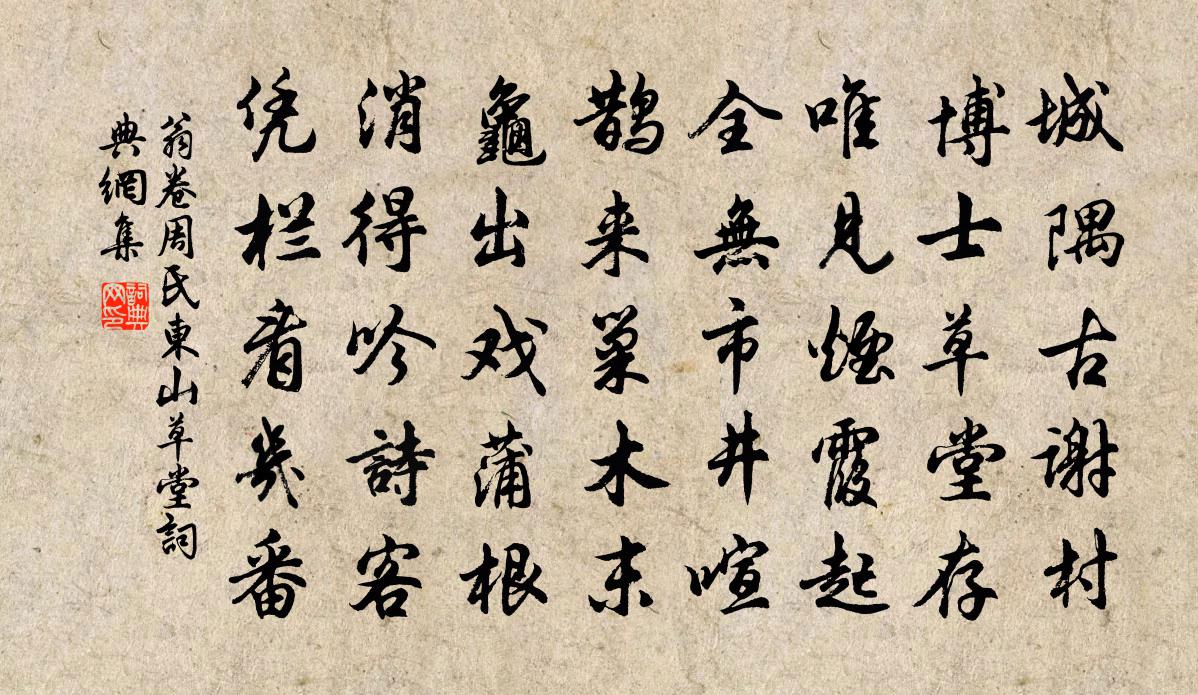 城隅古谢村
博士草堂存
唯見煙霞起
全無市井喧
鹊来巢木末
龜出戏蒲根
消得吟詩客
凭栏看幾番
翁卷周氏東山草堂詞
典網集
詞典
网印